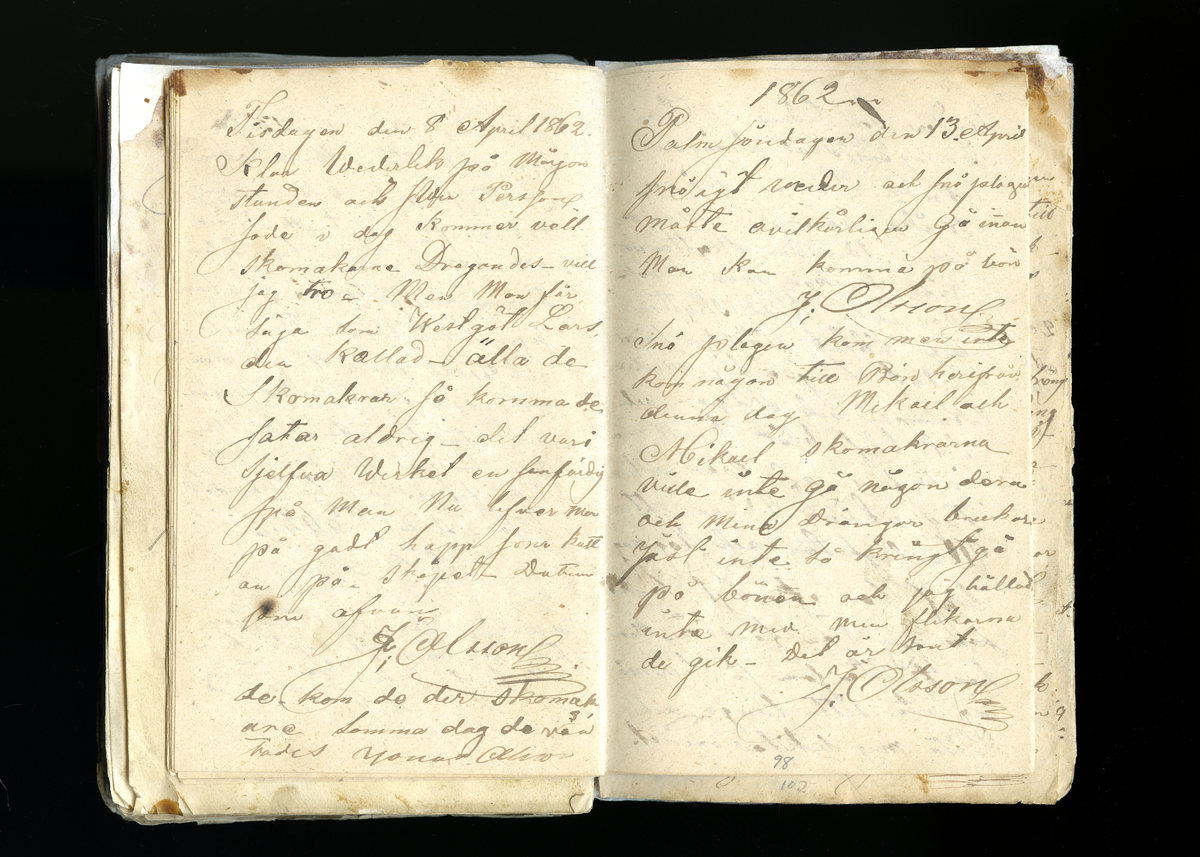 Tisdagen den 8 April 1862.
Klar Wederlek på Mårgon
stunden och Persson
sade i dag kommer vell
skomakarne Dragandes - vill
jag tro - Men Man får
säga som Westgöt Lars
den kallad - älla de
Skomakrar så komma de
satar aldrig - det vari
sjelfva Werket en sanfärdig
spå Man Nu lefver man
på gadt happ som katt
an på skåpet Datum
som afvan
J. Olsson
de kom de der skomak
are samma dag de vän
tades Jonas Olsson
1862
Palm söndagen den 13 April
snöigt veder och snö plogen
måtte ovilkårligen gå innan
Man kan komma på bön
J. Olsson
Snö plogen kom men inte
kom någon till Bön herifrån
denna dag Mikael och
Mikael skomakrarna
ville inte gå någon dera
och Mina Drängar brukar
just inte så kringt gå
på bönen och jag hålled
inte med men flikorna
de gik - Det är sant
J. Olsson
98
102